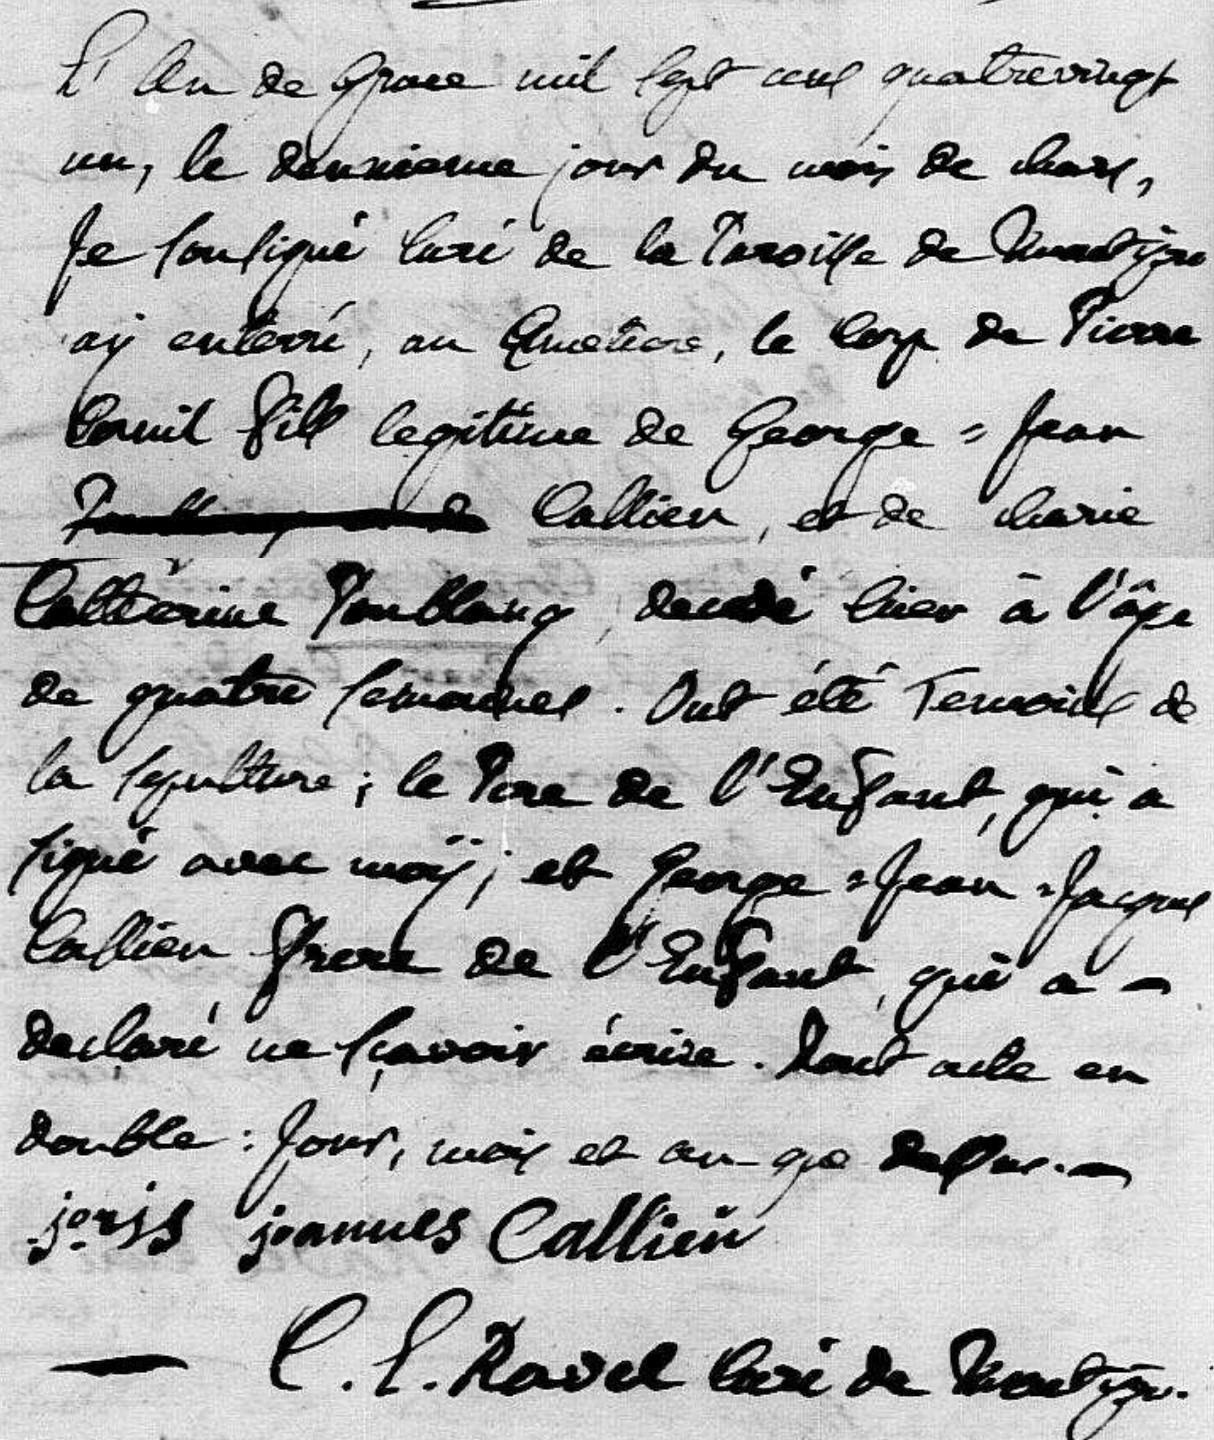 L'An de Grace mil sept cens quatrevingt
un, le deuxieme jour du mois de Mars,
Je soussigné Curé de la Paroisse de
aÿ enterré, au Cimetiere, le Corp de Pierre
Cornil fils legitime de George = Jean
Callieu, et de Marie
Catterine Poublang, decedé hier à l'âge
de quatre semaines. Ont été Temoins de
la sepulture; le Pere de l'Enfant, qui a
signé avec moÿ; et George = Jean = Jacques
Callieu frere de l'Enfant, qui a
declaré ne sçavoir écrire. Dont acte en
double: Jour, mois et an que dessus.
joris joannes Callieü
C. L. Ravel Curé de